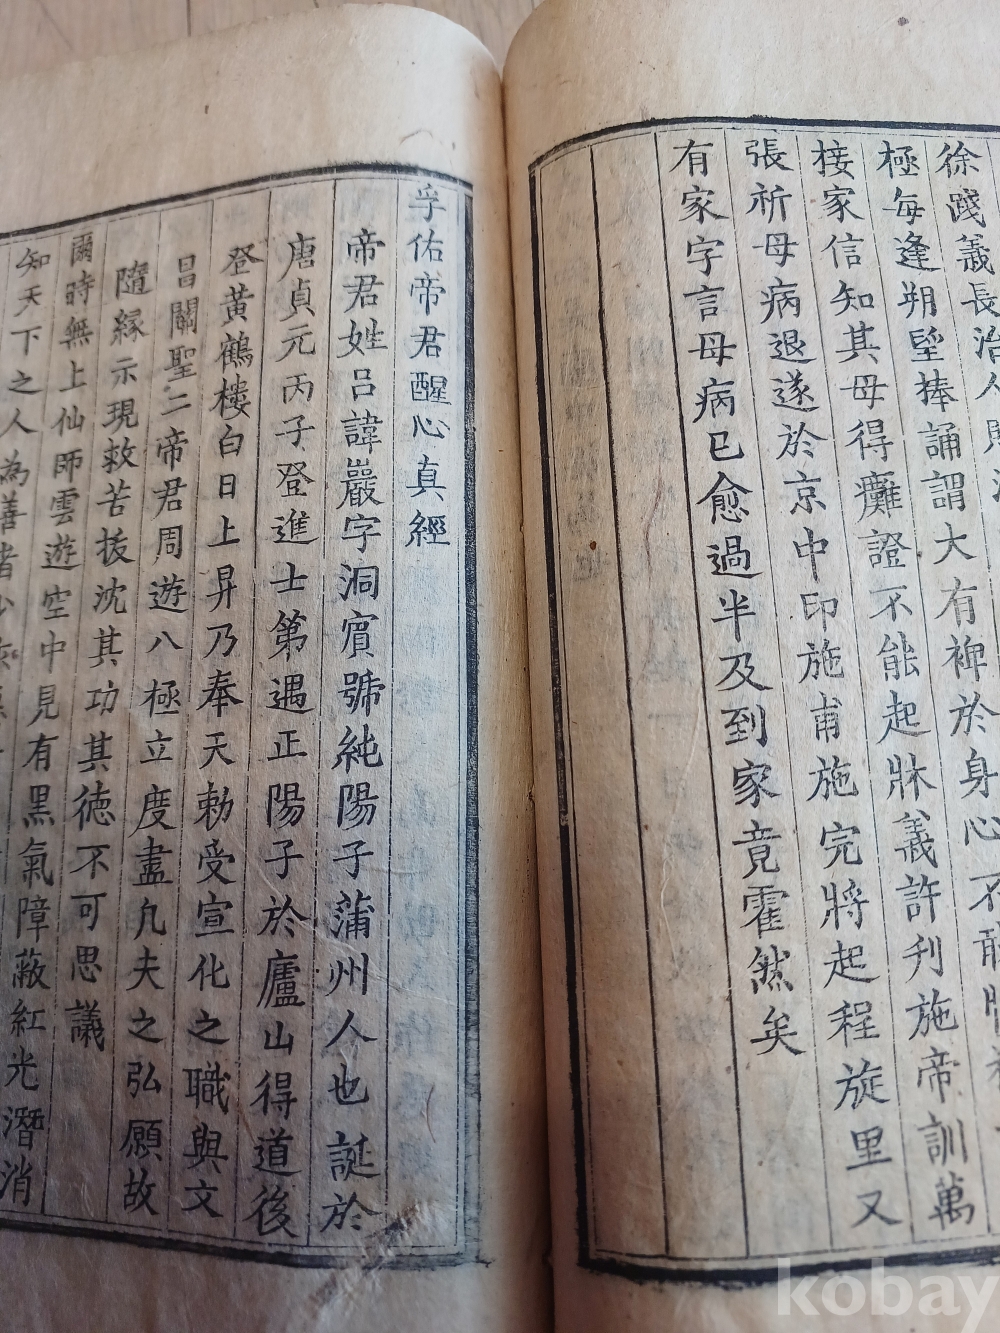 徐踐義長治人
極每逢朔望捧誦謂大有裨於身心不
接家信知其母得癱證不能起牀義許刋施帝訓萬
張祈母病退遂於京中印施甫施完將起程旋里又
有家字言母病已愈過半及到家竟霍然矣
孚佑帝君醒心真經
帝君姓呂諱巖字洞賓號純陽子蒲州人也誕於
唐貞元丙子登進士第遇正陽子於廬山得道後
登黃鶴樓白日上昇乃奉天勅受宣化之職與文
昌關聖二帝君周遊八極立度盡凡夫之弘願故
隨緣示現救苦拔沈其功其德不可思議
爾時無上仙師雲遊空中見有黑氣障蔽紅光潛消
知天下之人為善者少
kobay